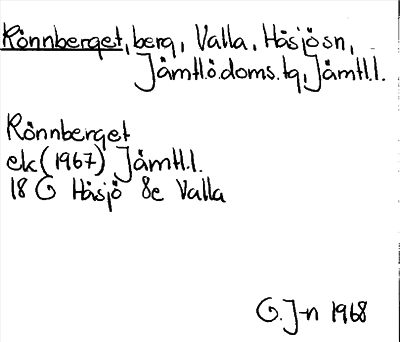 Rönnberget, berg, Valla, Häsjö sn,
Jämtl.ö.doms.tg, Jämtl.l.
Rönnberget
ek (1967) Jämtl.l.
18 G Häsjö 8e Valla
G. J-n 1968